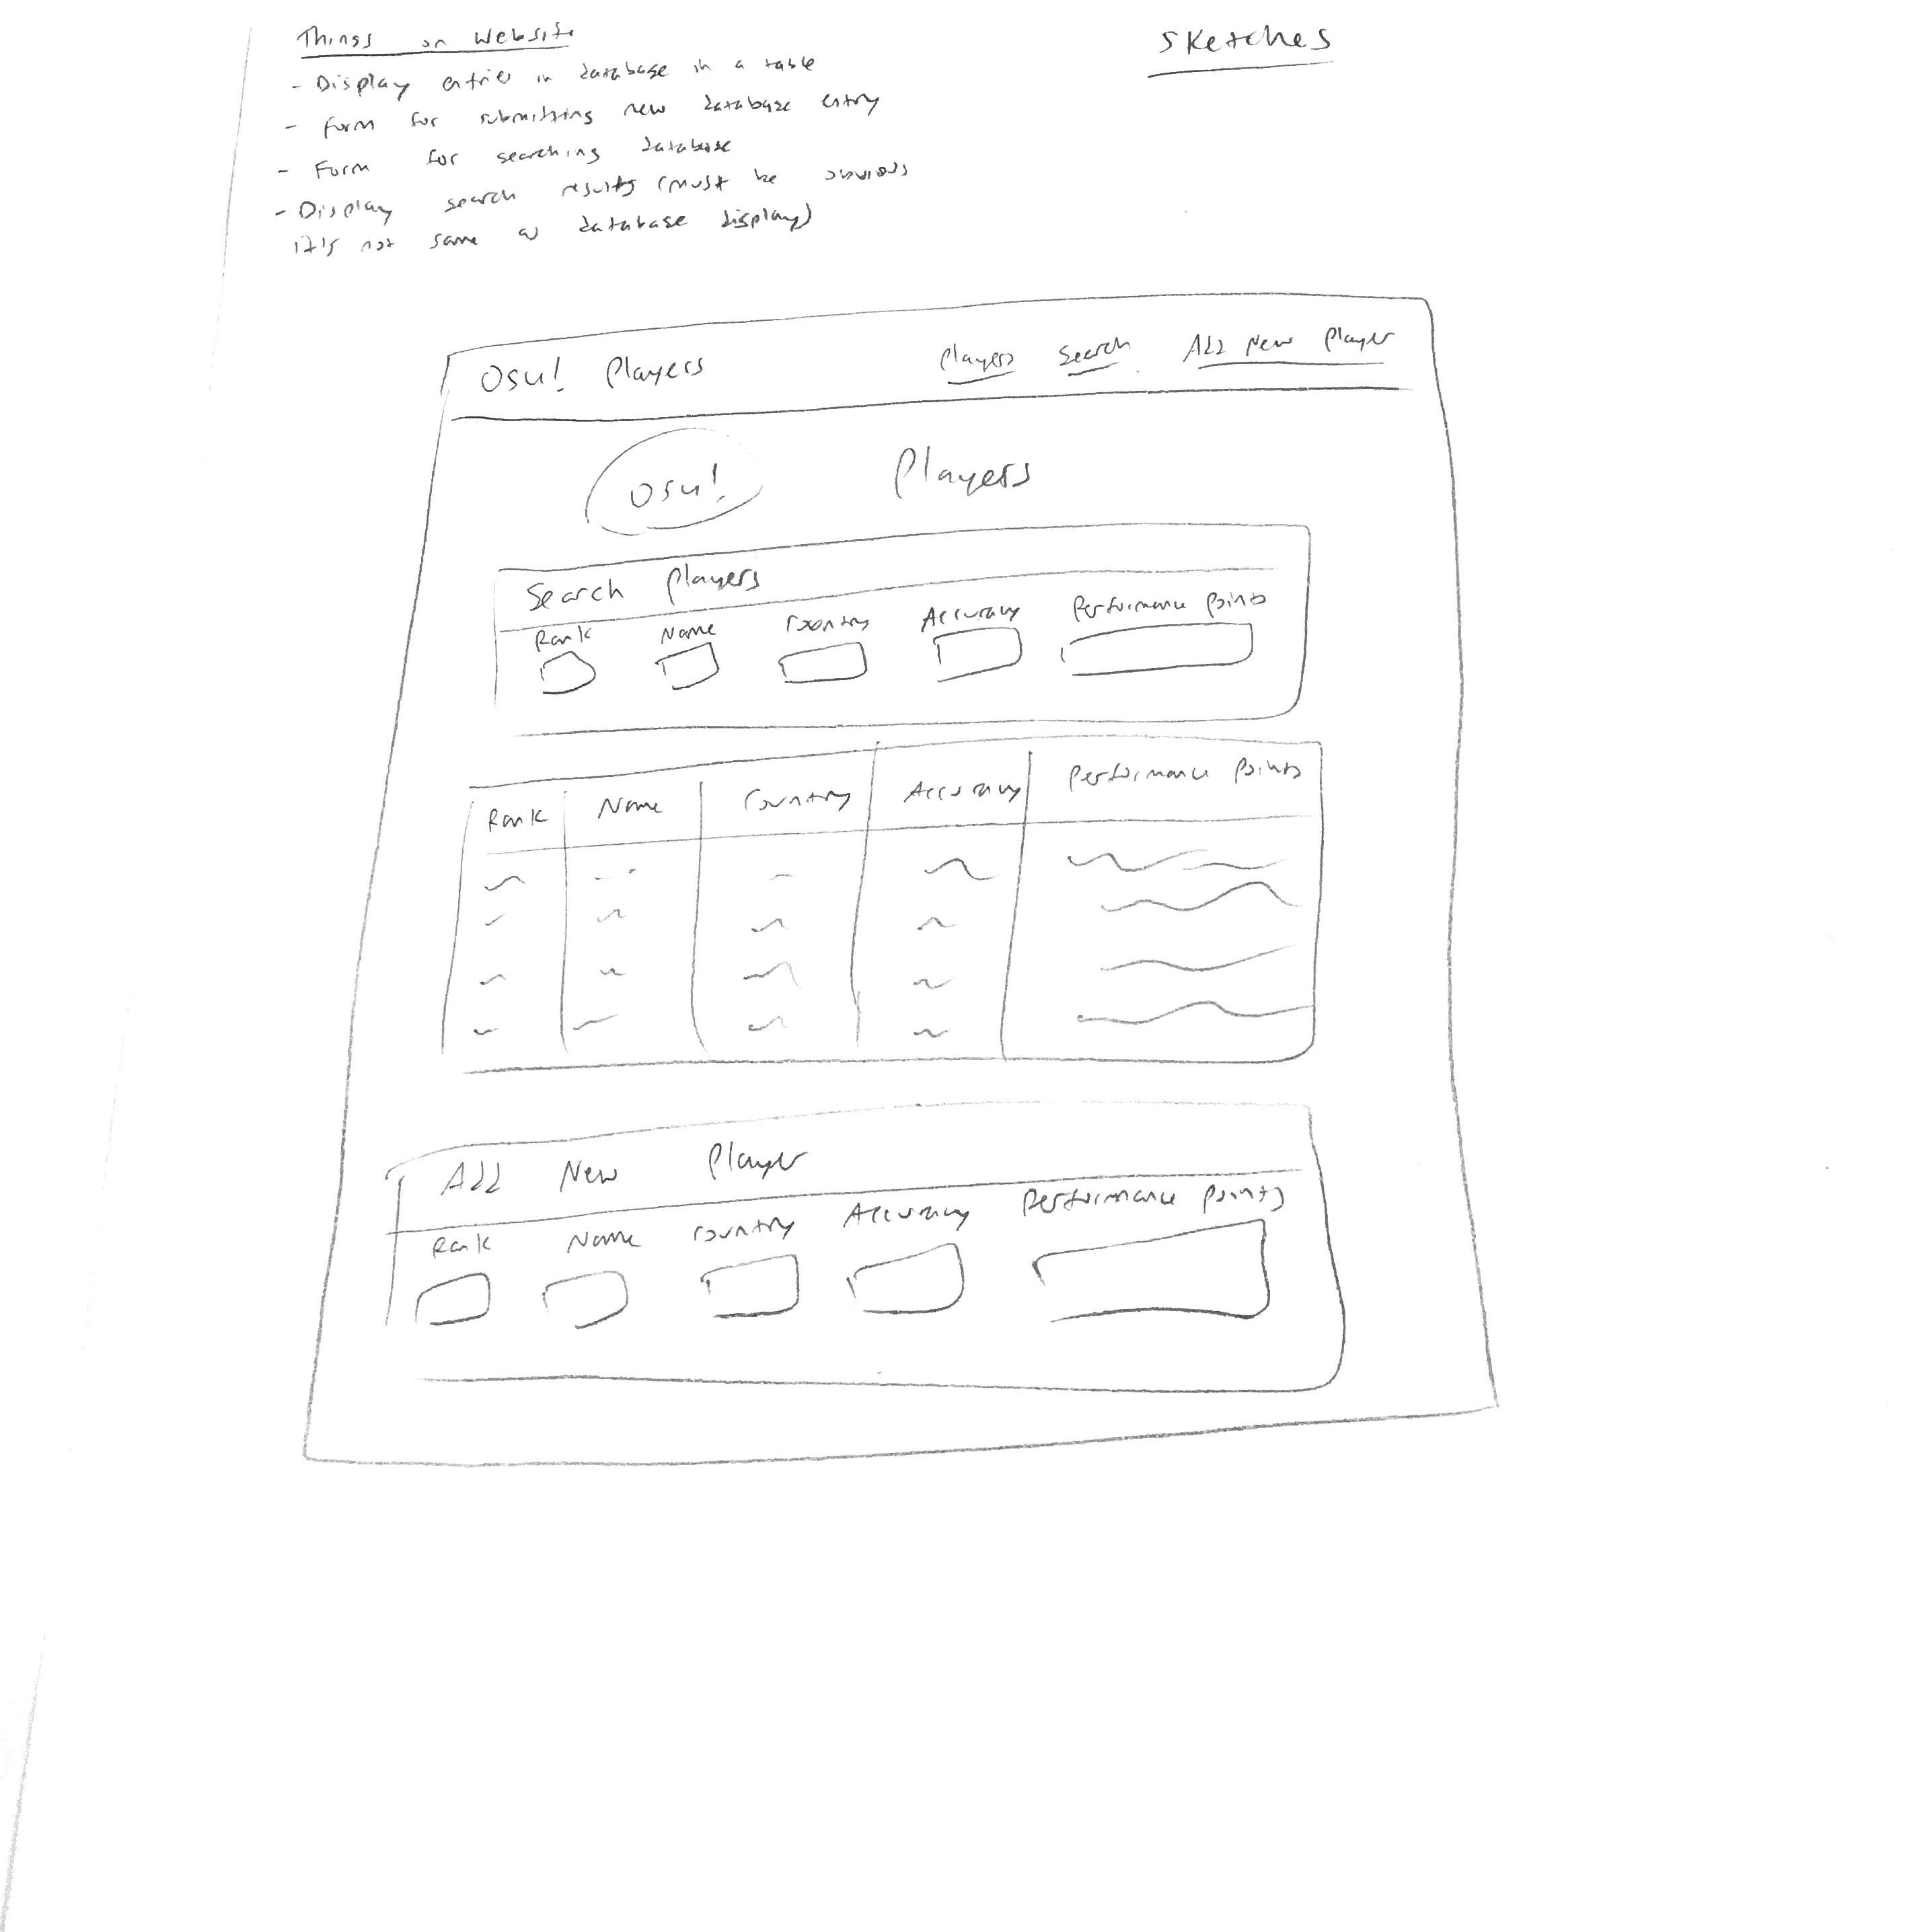 Things on Website
Sketches
- Display entries in database in a table
- Form for submitting new database entry
- Form for searching database
- Display search results (must be obvious
it's not same as database display)
Osu! Players
Players Search Add New Player
Osu! Players
Search Players
Rank Name Country Accuracy Performance Points
Rank Name Country Accuracy Performance Points
Add New Player
Rank Name Country Accuracy Performance Points